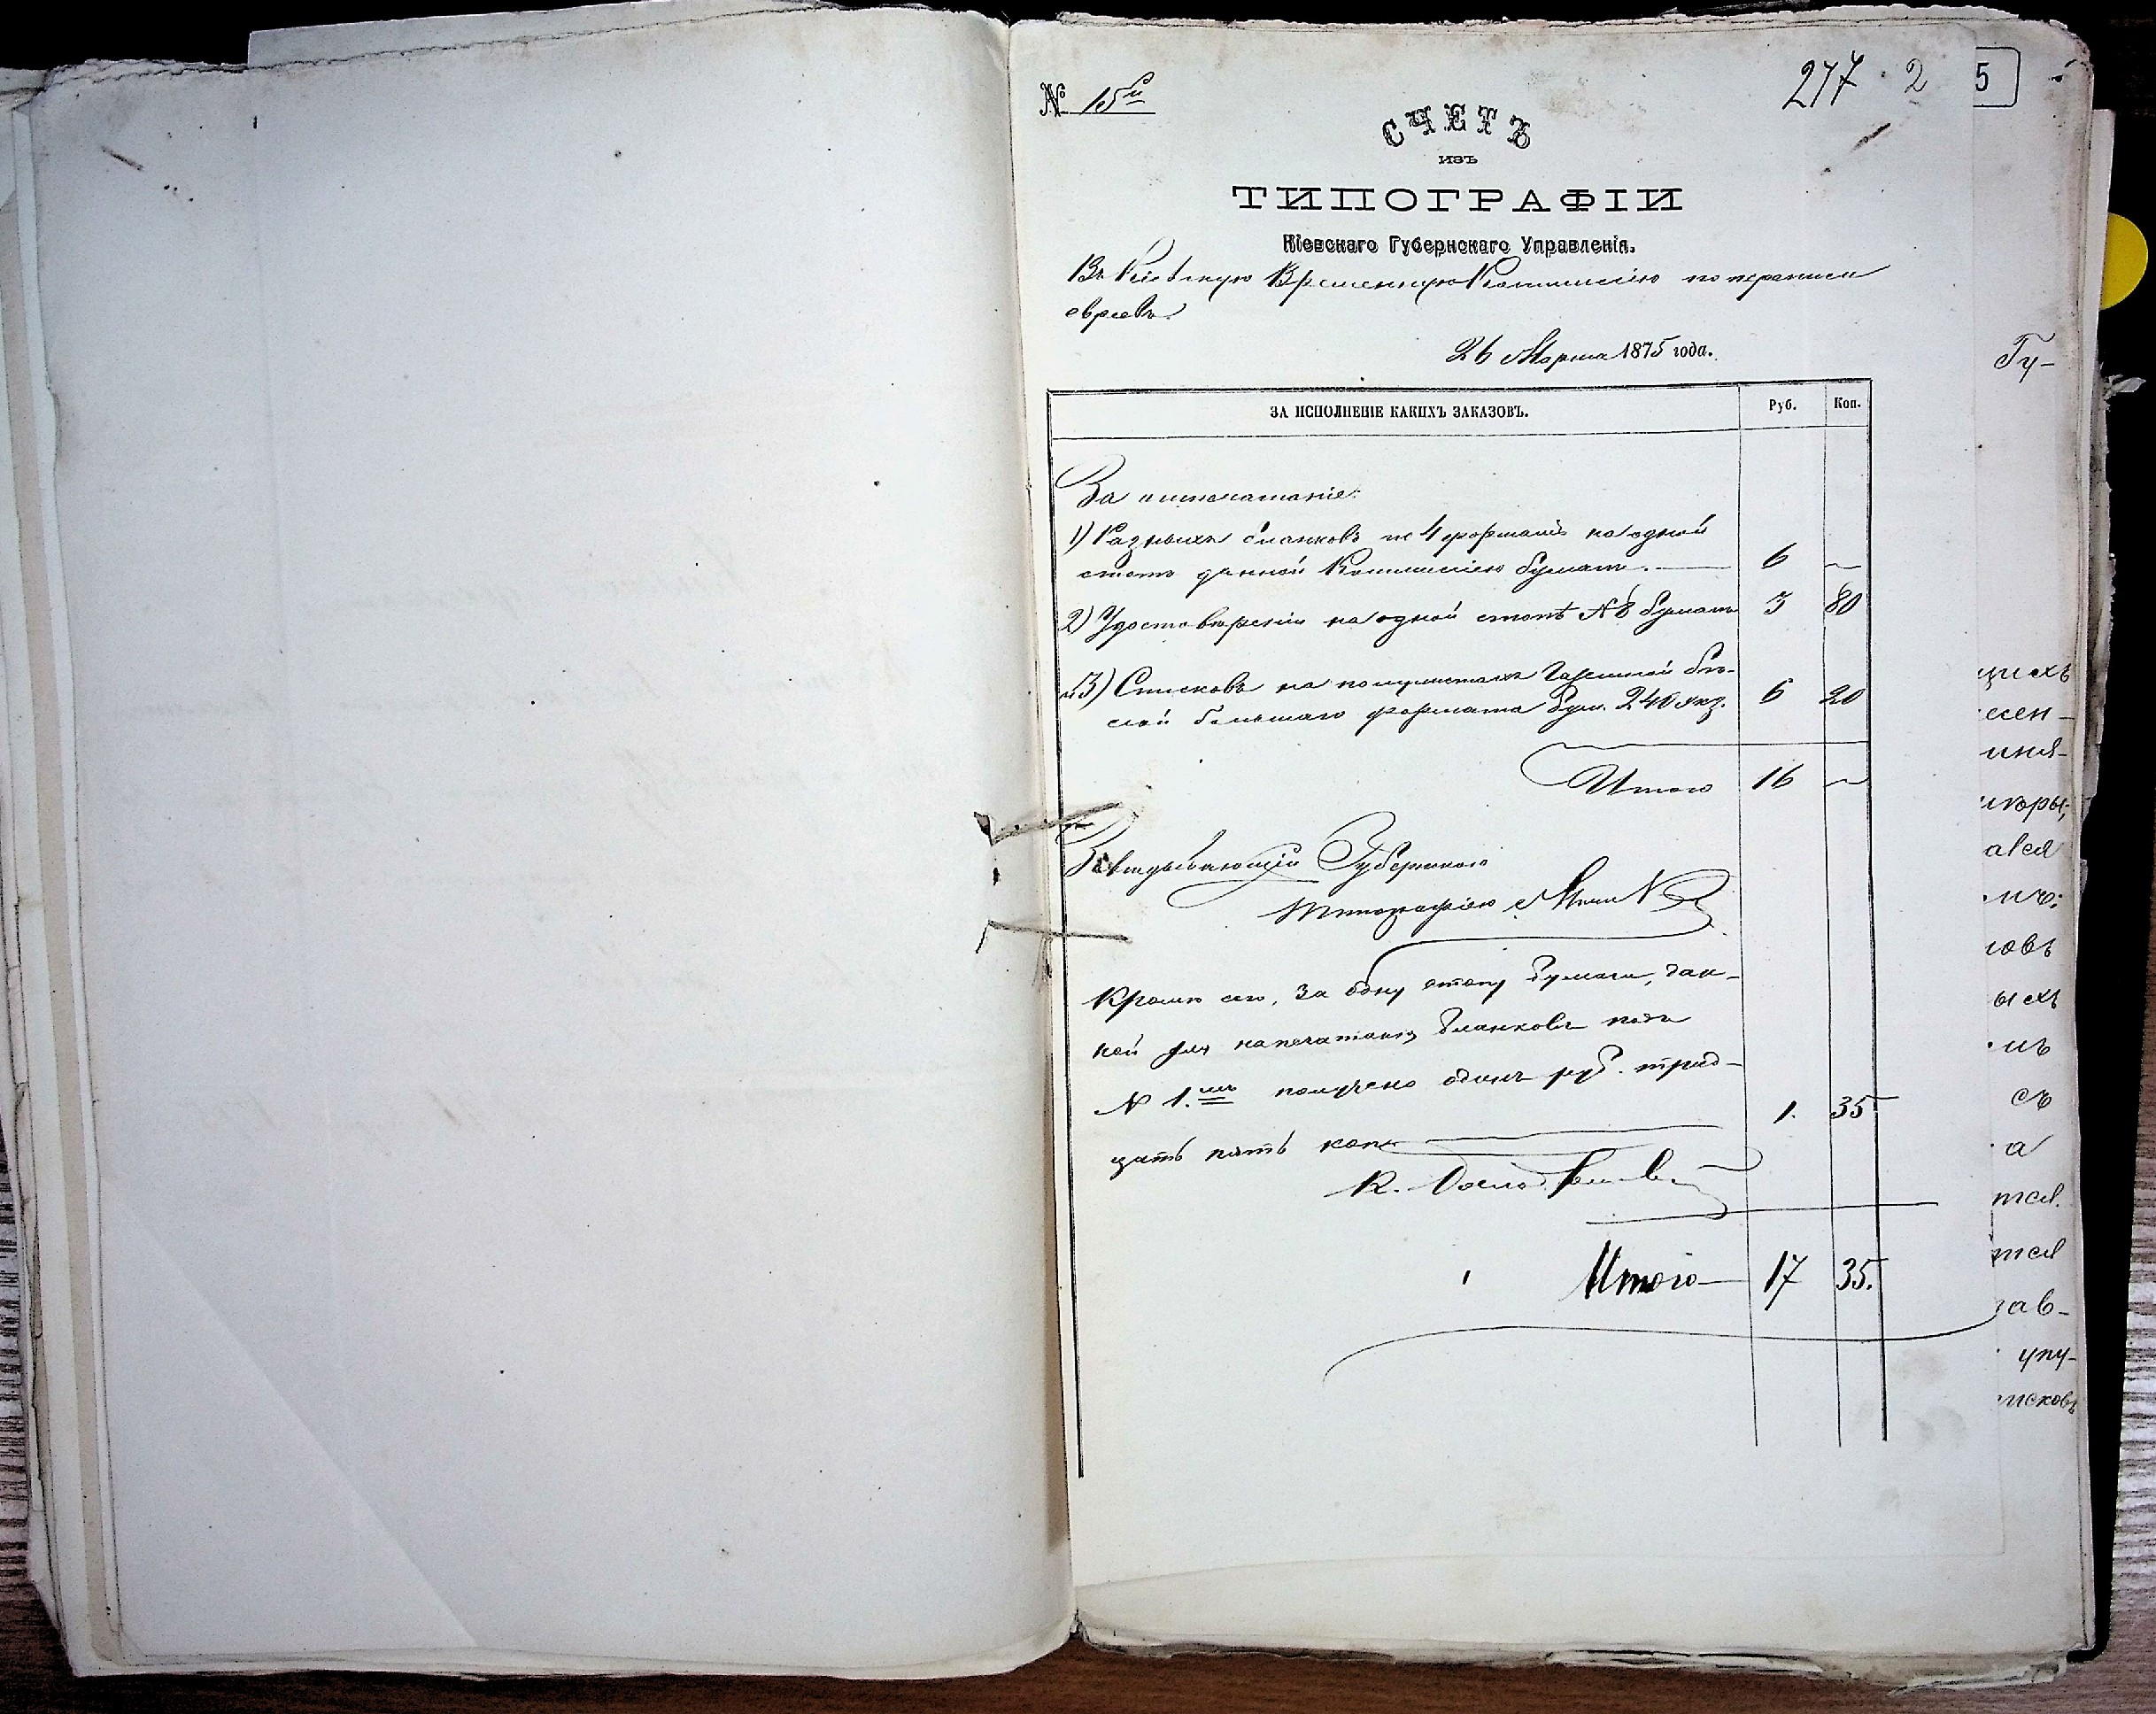 № 15й
277 2 5
СЧЕТЪ
ИЗЪ
ТИПОГРАФІИ
Кіевскаго Губернскаго Управленія.
Въ Кіевскую Временную Коммиссію по переписи
евреевъ.
26 Марта 1875 года.
ЗА ИСПОЛНЕНІЕ КАКИХЪ ЗАКАЗОВЪ. Руб. Коп.
За напечатаніе:
1) Разныхъ бланковъ 4 на одной
стопѣ данной Коммиссіею бумаги. 6 —
2) Удостовѣреній на одной стопѣ бумаги 3 80
и 3) Списковъ на полулистахъ бѣ-
лой большаго формата бум. 240 экз. 6 20
Итого 16 —
Завѣдывающій Губернскою
Типографіею
Кромѣ сего, за одну стопу бумаги, дан-
ной для напечатанія бланковъ подъ
№ 1.мъ получено одинъ руб. трид-
цать пять коп. 1. 35
К.
Итого 17 35.
Гу-
щихъ
есен-
иня-
ался
ловъ
ыхъ
съ
а
тся.
тся
зав-
упу-
исковъ